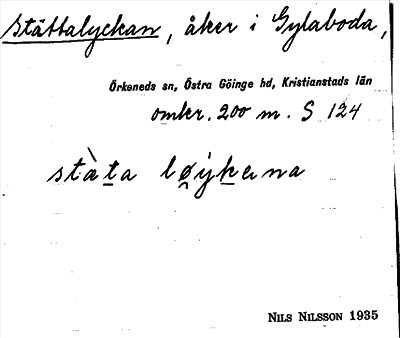 Stättalyckan, åker i Gylaboda,
Örkeneds sn, Östra Göinge hd, Kristianstads län
omkr. 200 m. S 124
stæ̀ta løýkena
NILS NILSSON 1935